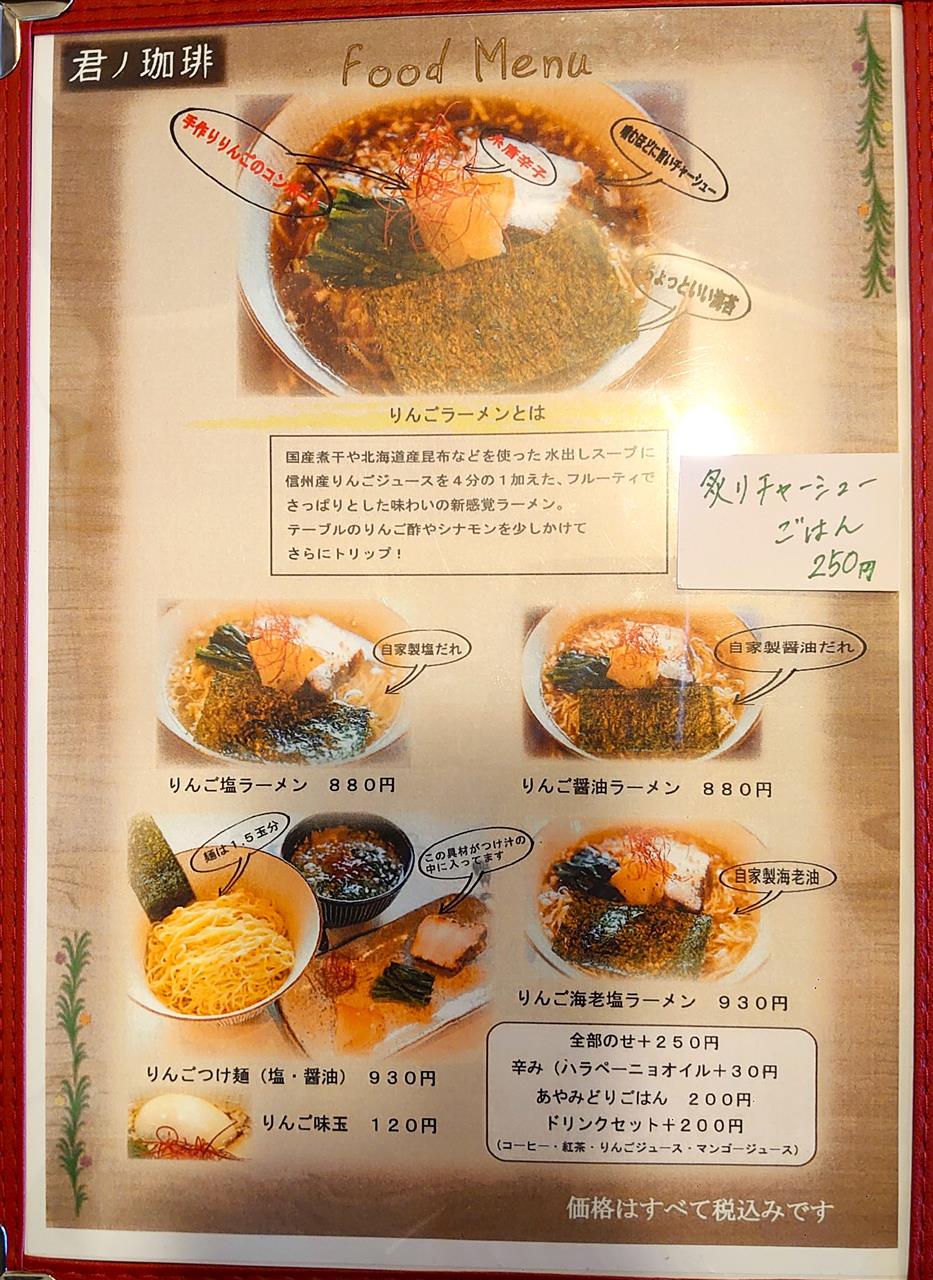 君ノ珈琲
Food Menu
手作りりんごのコンポート
糸唐辛子
噛むほどに旨いチャーシュー
ちょっといい海苔
りんごラーメンとは
国産煮干や北海道産昆布などを使った水出しスープに
信州産りんごジュースを４分の１加えた、フルーティで
さっぱりとした味わいの新感覚ラーメン。
テーブルのりんご酢やシナモンを少しかけて
さらにトリップ！
炙りチャーシュー
ごはん
250円
自家製塩だれ
自家製醤油だれ
りんご塩ラーメン　８８０円
りんご醤油ラーメン　８８０円
麺は１.５玉分
この具材がつけ汁の
中に入ってます
自家製海老油
りんご海老塩ラーメン　９３０円
りんごつけ麺（塩・醤油）　９３０円
りんご味玉　１２０円
全部のせ＋２５０円
辛み（ハラペーニョオイル＋３０円
あやみどりごはん　２００円
ドリンクセット＋２００円
（コーヒー・紅茶・りんごジュース・マンゴージュース）
価格はすべて税込みです